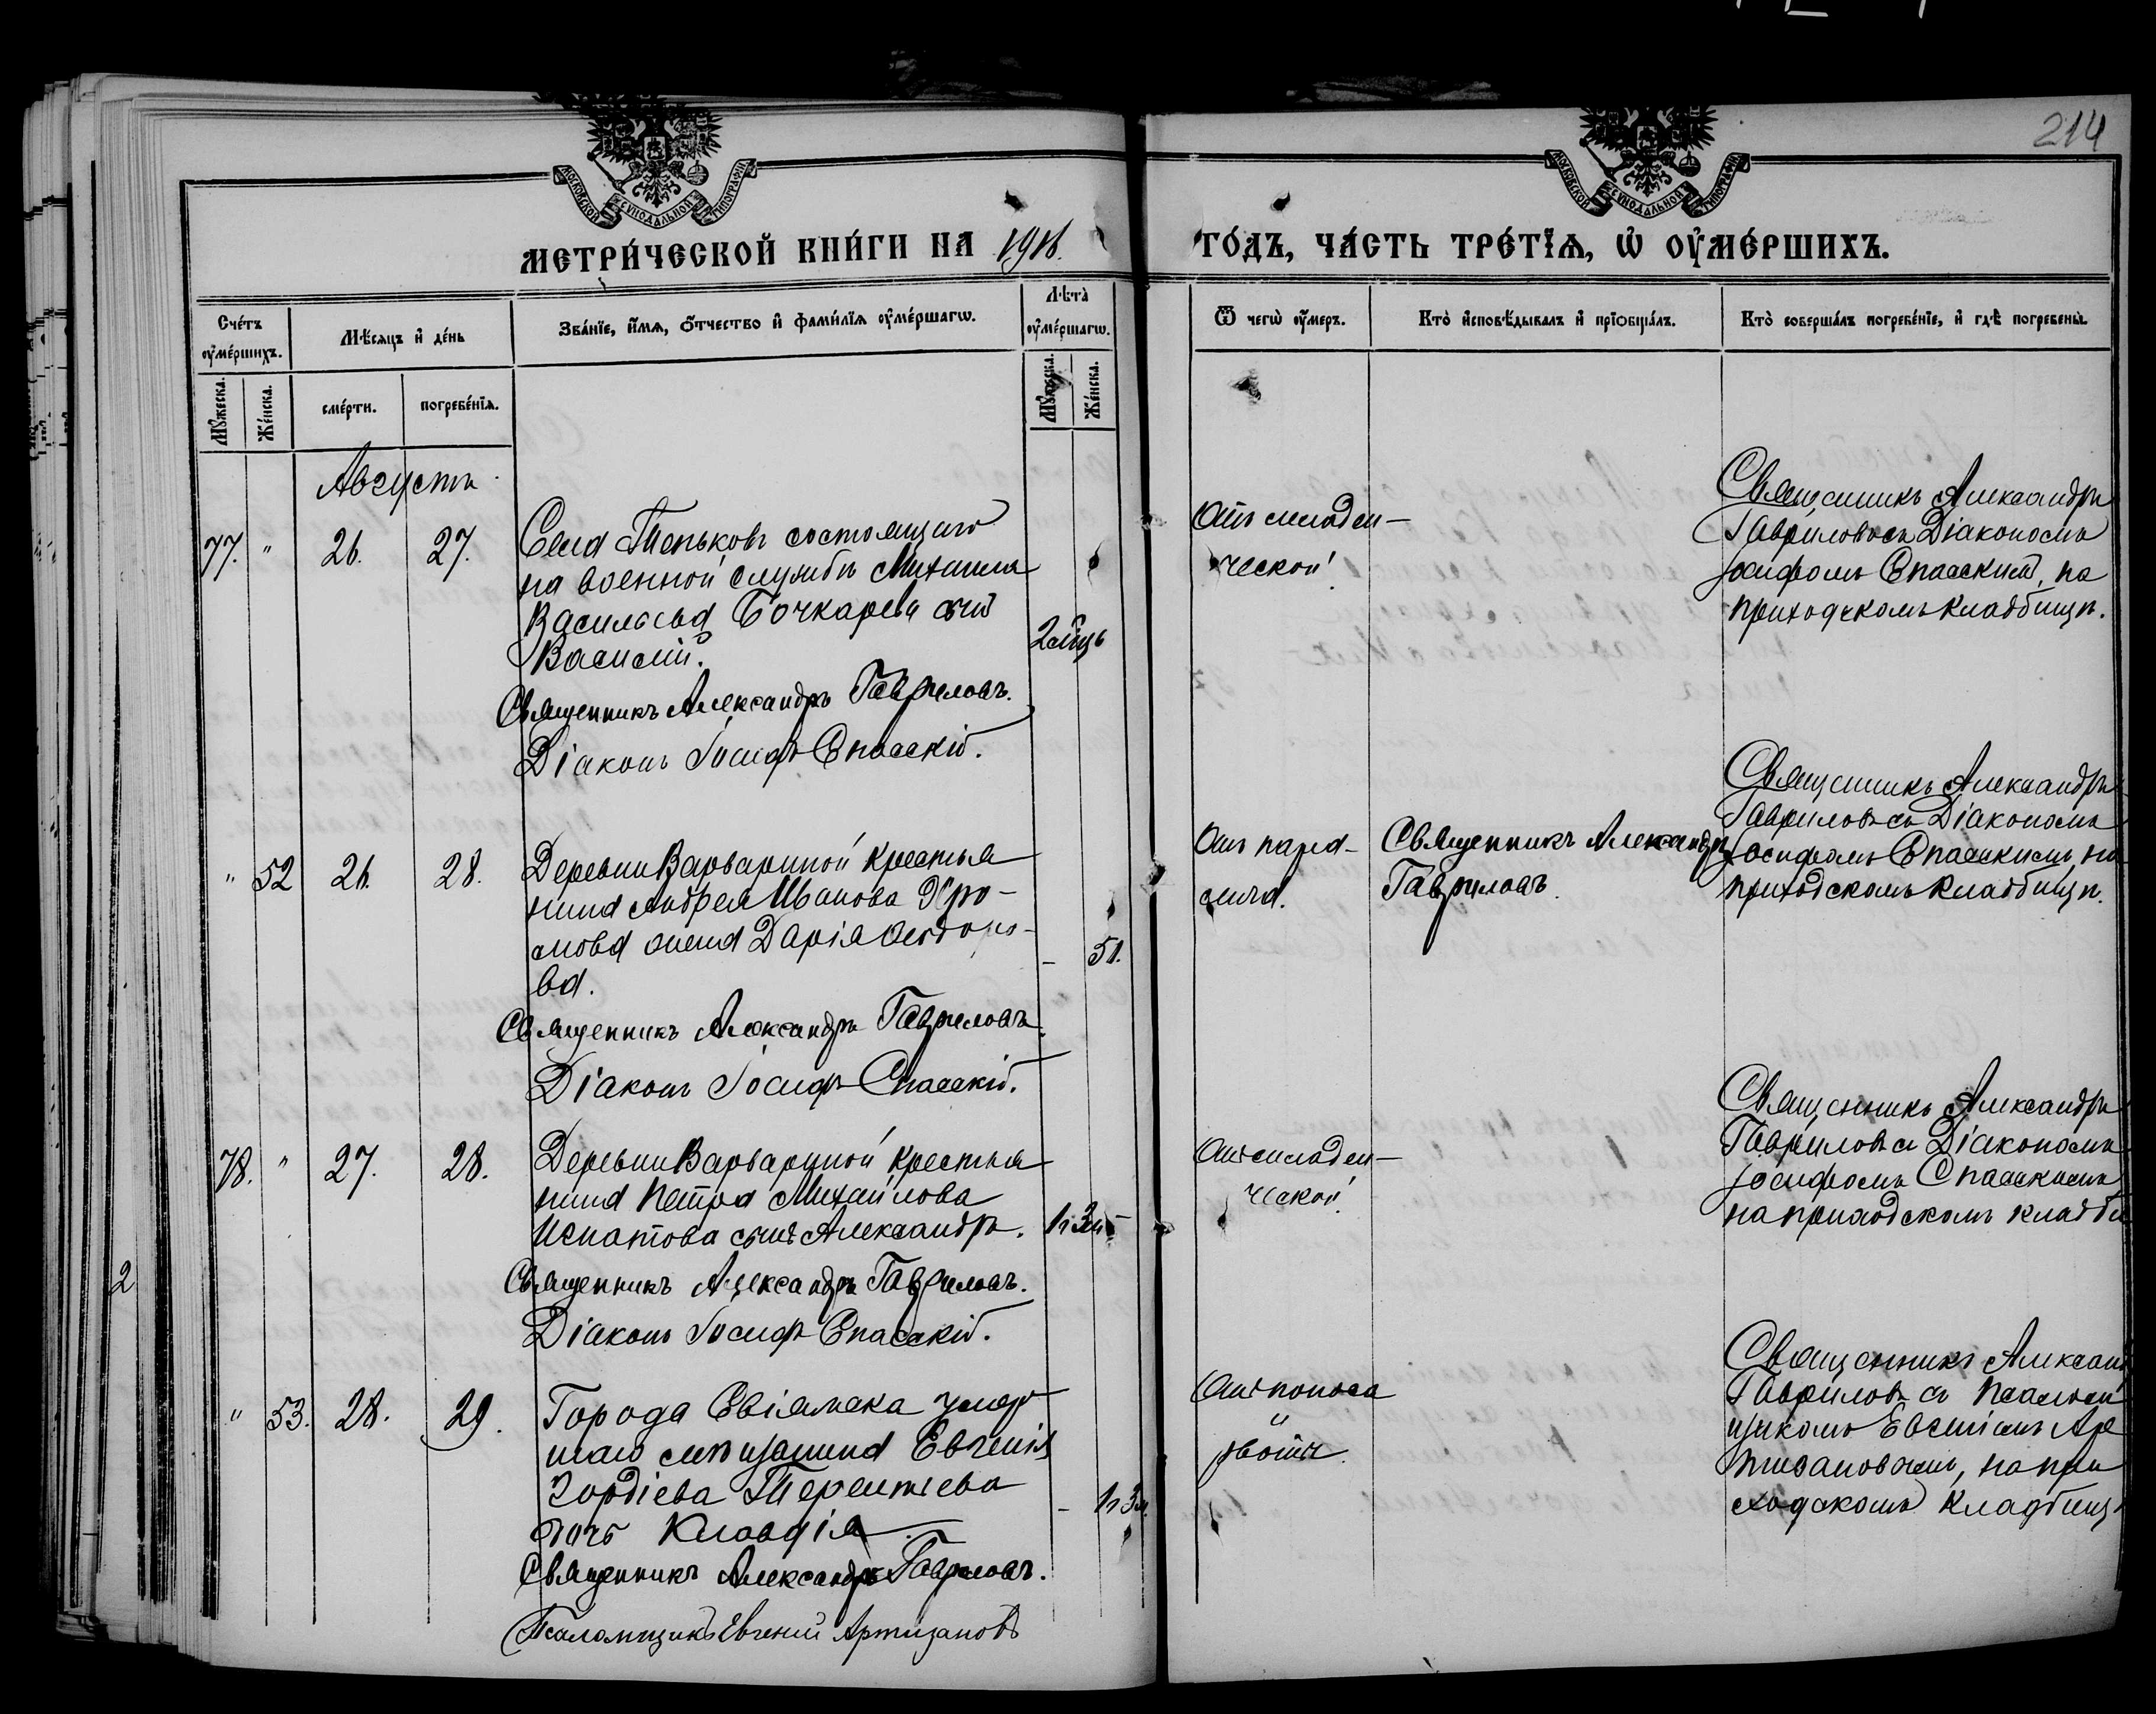 214
МОСКОВСКОЙ СѴНОДАЛЬНОЙ ТИПОГРАФІИ
МОСКОВСКОЙ СѴНОДАЛЬНОЙ ТИПОГРАФІИ
МЕТРИ́ЧЕСКОЙ КНИ́ГИ НА 1916.
ГО́ДЪ, ЧА́СТЬ ТРЕ́ТІѦ, Ѡ҆ ОУ҆МЕ́РШИХЪ.
Сче́тъ оу҆ме́ршихъ.
Мꙋ́жеска.
Же́нска.
Мѣ́сяцъ и҆ де́нь
сме́рти.
погребе́нїѧ.
Зва́нїе, и҆́мѧ, ѻ҆́тчество и҆ фами́лїѧ оу҆ме́ршагѡ.
Лѣ̀та оу҆ме́ршагѡ.
Мꙋ́жеска.
Же́нска.
Ѿ чегѡ̀ оу҆́меръ.
Кто̀ и҆сповѣ́дывалъ и҆ прїѡбща́лъ.
Кто̀ соверша́лъ погребе́нїе, и҆ гдѣ̀ погребены̀.
Августъ
77. " 26. 27.
Села Теньковъ состоящаго
на военной службѣ Михаила
Васильева Бочкарева сынъ
Василій.
2 мѣць
Священникъ Александръ Гавриловъ.
Діаконъ Іосифъ Спасскій.
Отъ младен-
ческой
Священникъ Александръ
Гавриловъ съ Діакономъ
Іосифомъ Спасскимъ, на
приходскомъ кладбищѣ.
" 52 26. 28.
Деревни Варвариной крестья
нина Андрея Иванова
жена Дарія Ѳедоро-
ва.
- 51.
Священникъ Александръ Гавриловъ.
Діаконъ Іосифъ Спасскій.
Отъ пара-
лича.
Священникъ Александръ
Гавриловъ.
Священникъ Александръ
Гавриловъ съ Діакономъ
Іосифомъ Спасскимъ, на
приходскомъ кладбищѣ.
78. " 27. 28.
Деревни Варвариной крестья
нина Петра Михайлова
Игнатова сынъ Александръ.
Священникъ Александръ Гавриловъ.
Діаконъ Іосифъ Спасскій.
Отъ младен-
ческой.
Священникъ Александръ
Гавриловъ съ Діакономъ
Іосифомъ Спасскимъ
на приходскомъ кладби
2
" 53. 28. 29.
Города Свіяжска умер
шаго мѣщанина Евгенія
Гордіева Терентьева
дочь Клавдія.
Священникъ Александръ Гавриловъ.
Псаломщикъ Евгеній Артизановъ
Отъ поноса
и
рвоты.
Священникъ Алексан
Гавриловъ съ псалом
щикомъ Евгеніемъ Ар
тизановымъ, на при
ходскомъ кладбищ